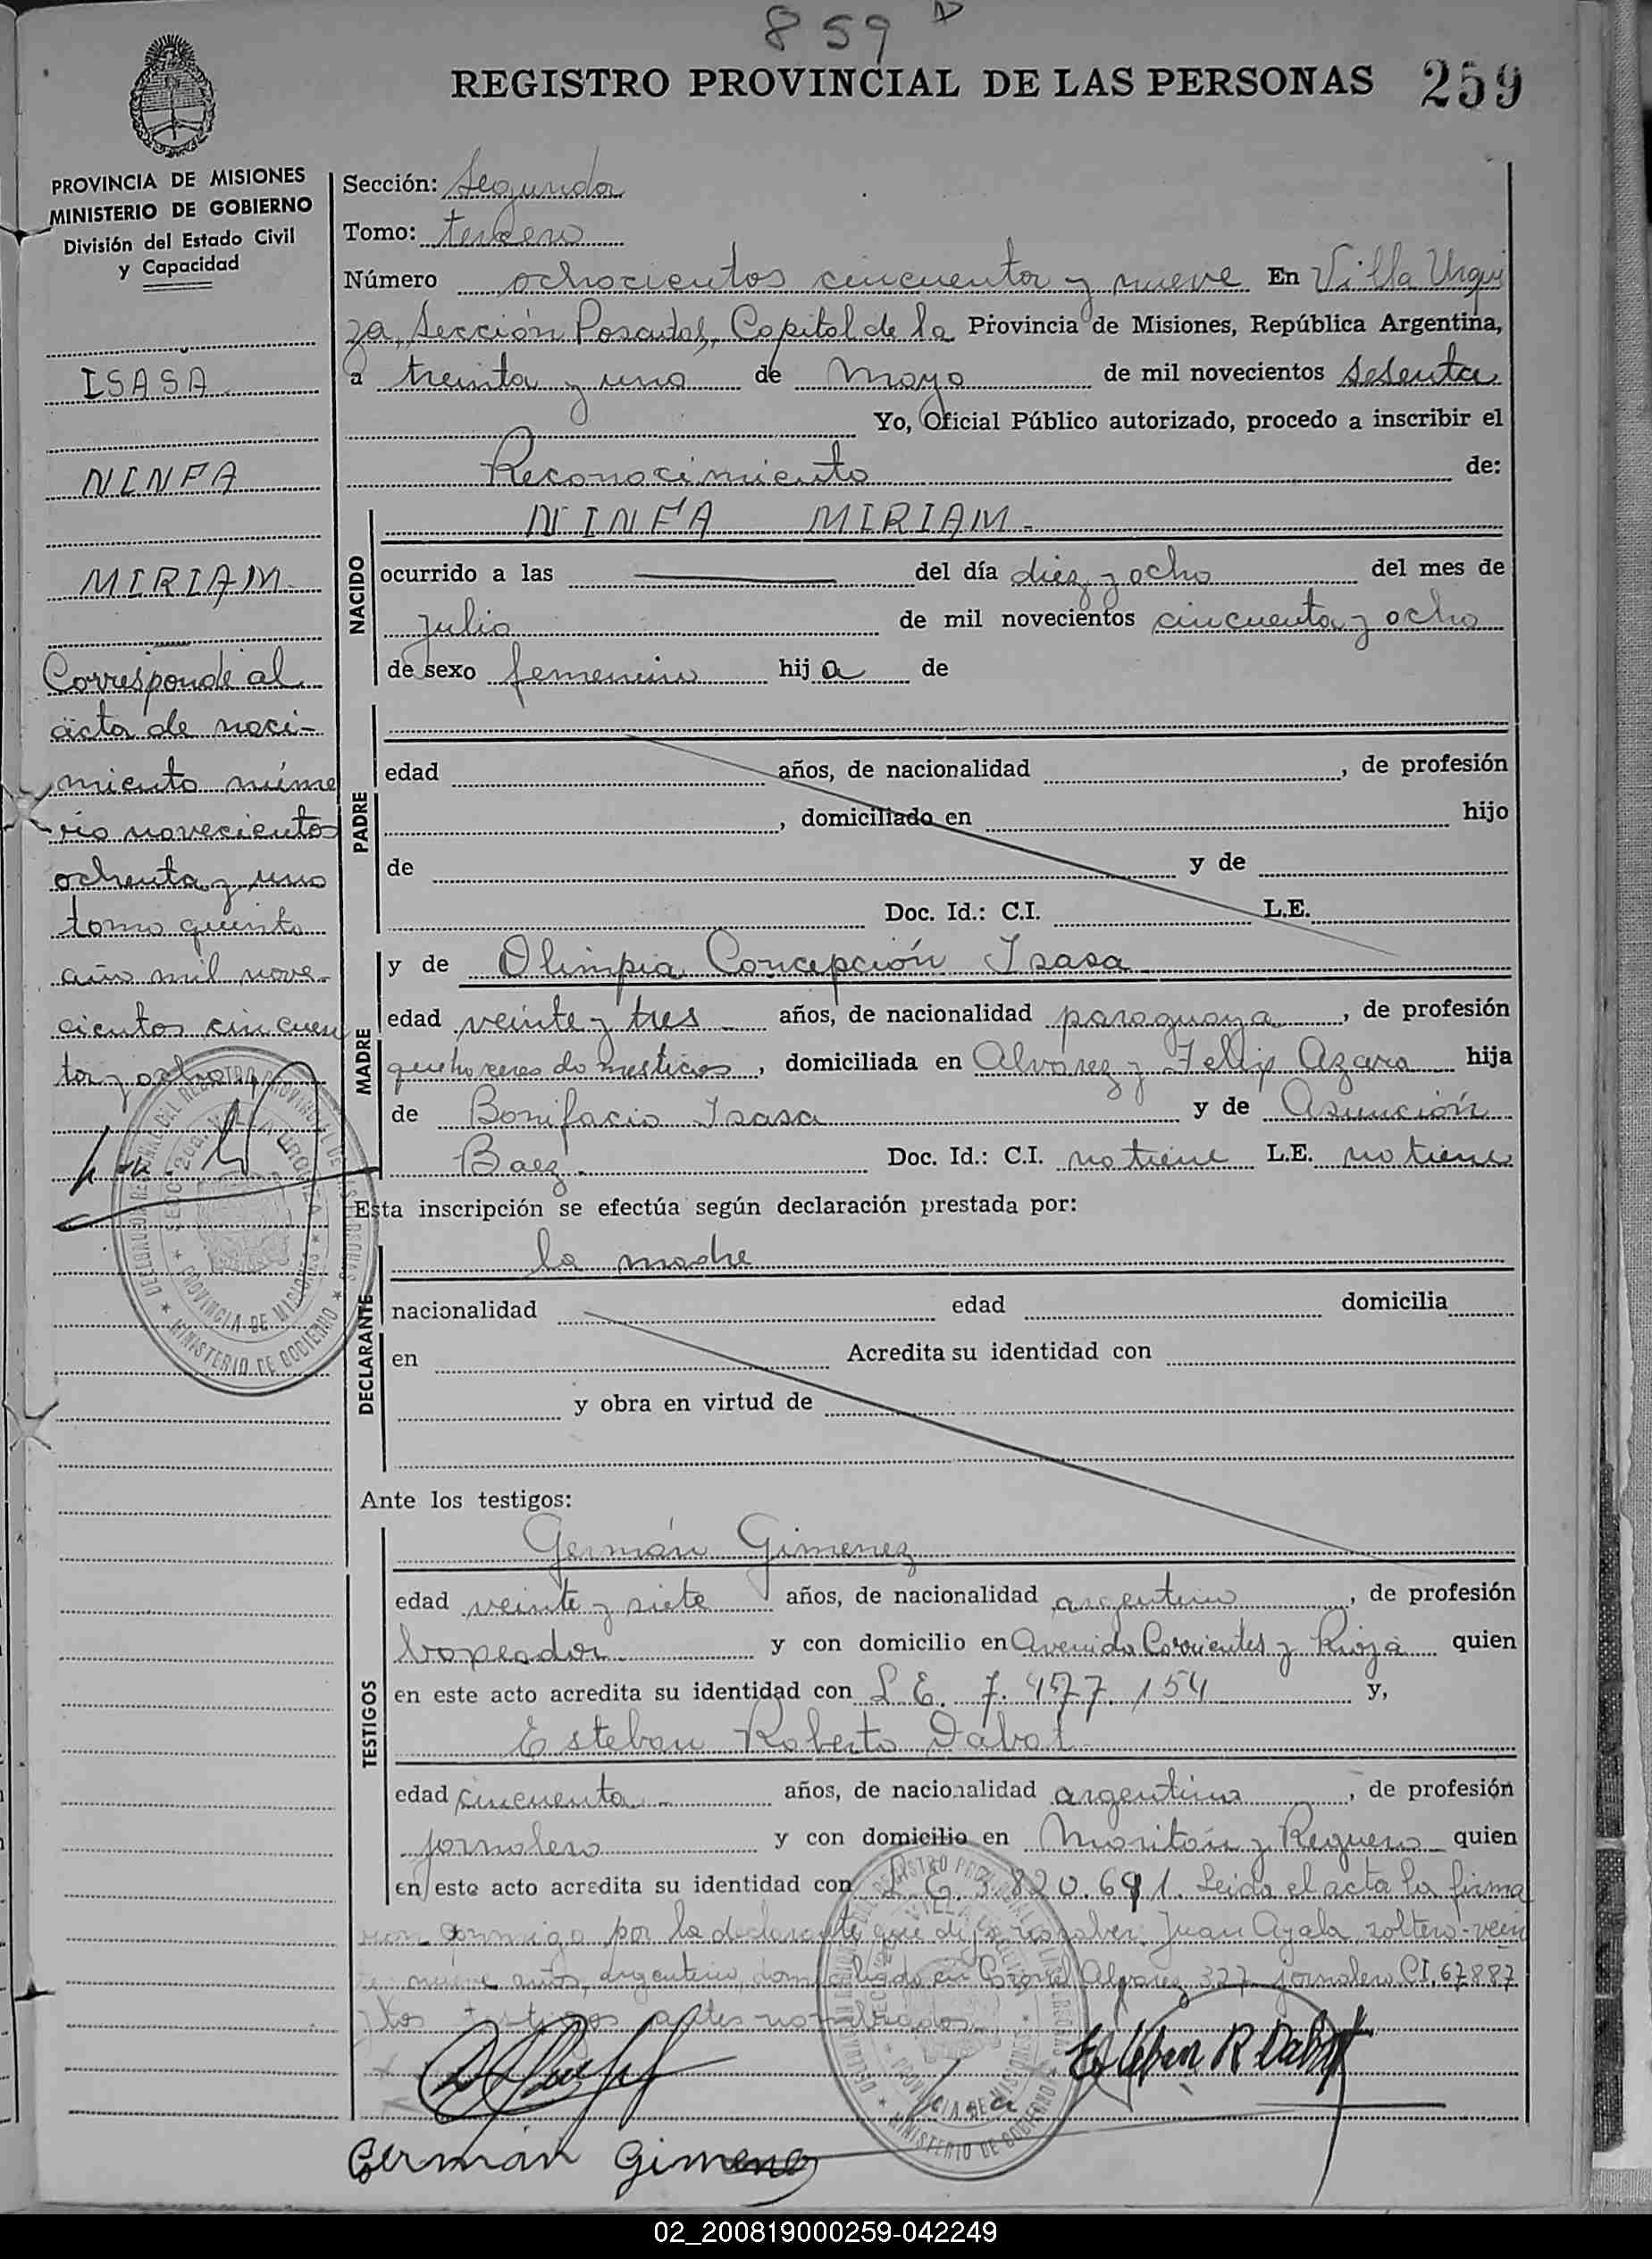 859
REGISTRO PROVINCIAL DE LAS PERSONAS 259
PROVINCIA DE MISIONES
MINISTERIO DE GOBIERNO
División del Estado Civil
y Capacidad
ISASA
NINFA
MIRIAM
Corresponde al
acta de naci-
miento núme
ro novecientos
ochenta y uno
tomo quinto
año mil nove-
cientos cincuen
ta y ocho
Sección: Segunda
Tomo: tercero
Número ochocientos cincuenta y nueve En Villa Urqui
za, Sección Posadas, Capital de la Provincia de Misiones, República Argentina,
a treinta y uno de Mayo de mil novecientos sesenta
Yo, Oficial Público autorizado, procedo a inscribir el
Reconocimiento de:
NACIDO
NINFA MIRIAM.-
ocurrido a las del día diez y ocho del mes de
julio de mil novecientos cincuenta y ocho
de sexo femenino hija de
PADRE
edad años, de nacionalidad , de profesión
, domiciliado en hijo
de y de
Doc. Id.: C.I. L.E.
MADRE
y de Olimpia Concepción Isasa
edad veinte y tres años, de nacionalidad paraguaya, de profesión
quehaceres domesticos, domiciliada en Alvarez y Felix Azara hija
de Bonifacio Isasa y de Asunción
Baez.- Doc. Id.: C.I. no tiene L.E. no tiene
Esta inscripción se efectúa según declaración prestada por:
DECLARANTE
la madre
nacionalidad edad domicilia
en Acredita su identidad con
y obra en virtud de
Ante los testigos:
TESTIGOS
Germán Gimenez
edad veinte y siete años, de nacionalidad argentino, de profesión
y con domicilio en Avenida Corrientes y Rioja quien
en este acto acredita su identidad con L.E. 7.477.154 y,
Esteban Roberto Dabat
edad cincuenta años, de nacionalidad argentino, de profesión
jornalero y con domicilio en quien
en este acto acredita su identidad con L.E. 3.820.691. Leida el acta la firma
ron conmigo por la declarante que dijo no saber, Juan Ayala, soltero, vein
te nueve años, argentino, domiciliado en Alvarez 327 jornalero CI. 67887
y los testigos antes nombrados
Esteban R Dabat
German Gimenez
DELEGACION REGIONAL DEL REGISTRO PROVINCIAL DE LAS PERSONAS
MINISTERIO DE GOBIERNO
SECC. 2da. VILLA URQUIZA
PROVINCIA DE MISIONES
02_200819000259-042249